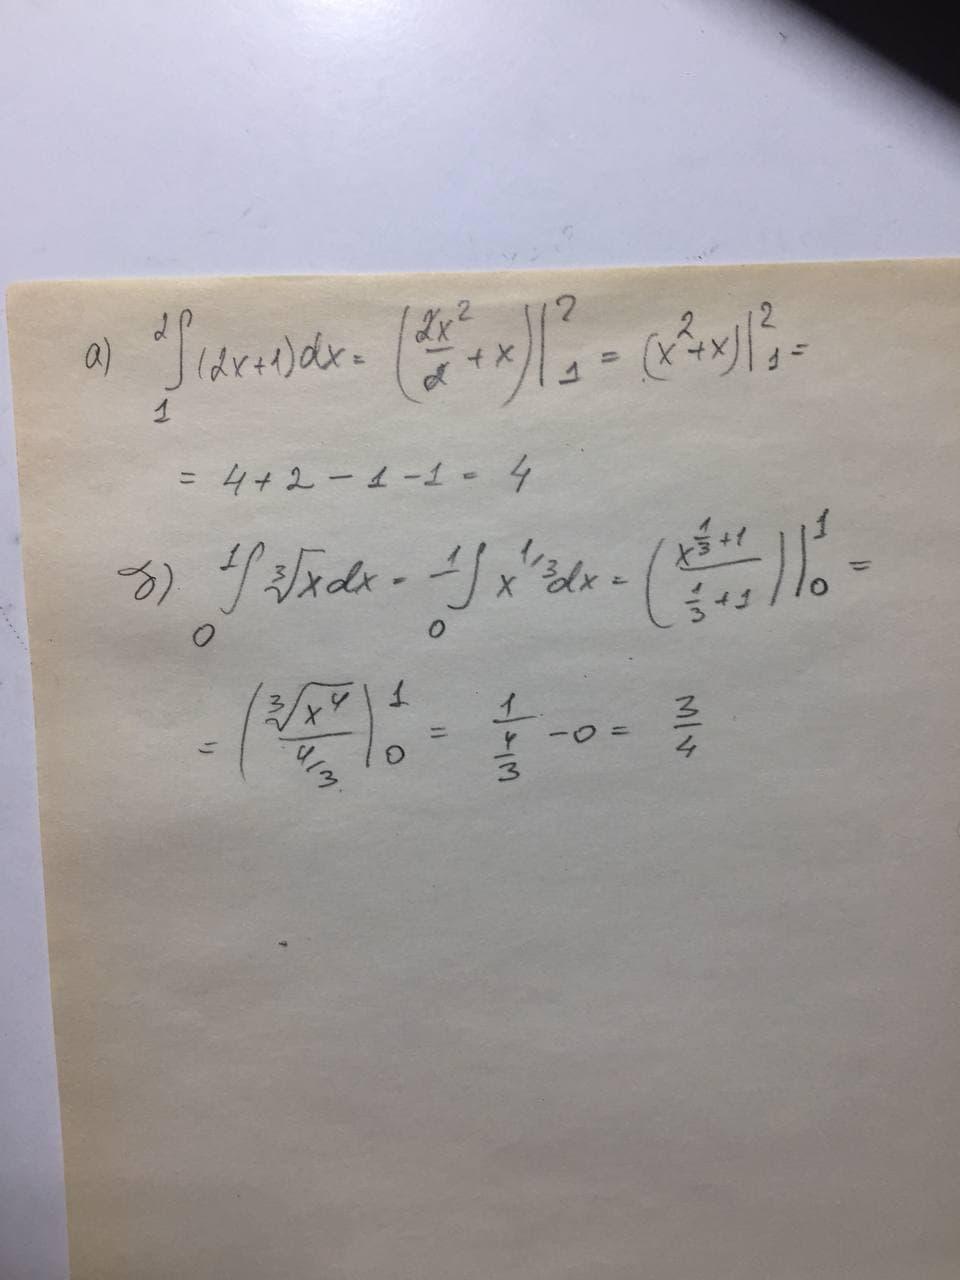 а) ∫₁² (2x+1)dx = (2x²/2 + x)|₁² = (x²+x)|₁² =
= 4+2-1-1 = 4
б) ∫₀¹ ∛x dx = ∫₀¹ x^(1/3) dx = (x^(1/3+1)/(1/3+1))|₀¹ =
= (∛(x⁴)/(4/3))|₀¹ = 1/(4/3) - 0 = 3/4